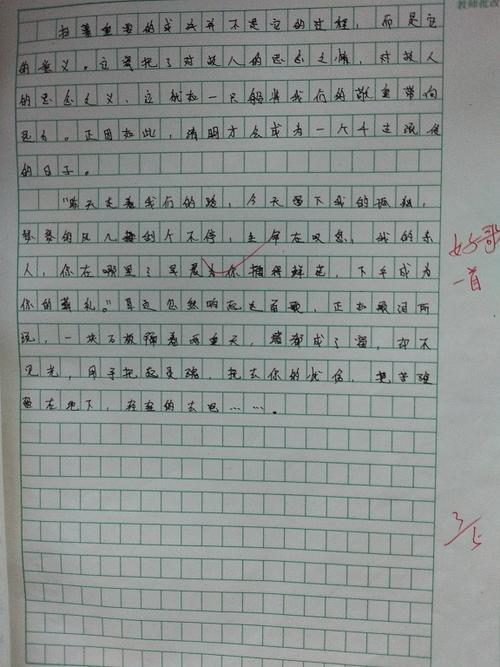 教师批改
扫墓重要的或许并不是它的过程，而是它
的意义。它寄托了对故人的思念之情，对故人
的思念之义，它就如一只船将我们的敬重带向
远方。正因如此，清明才会成为一个千古流传
的日子。
"昨天走着我们的路，今天留下我的孤独，
瑟瑟的风儿刮个不停 生命在叹息，我的亲
人，你在哪里？早晨为你摘得鲜花，下午成为
你的葬礼。"耳边忽然响起这首歌，正如歌词所
说，一块石板隔着两重天，
见光，用手把起灵魂，把去你的忧伤，把苦
在地下，存在的去吧……。
好歌
一首
3/5